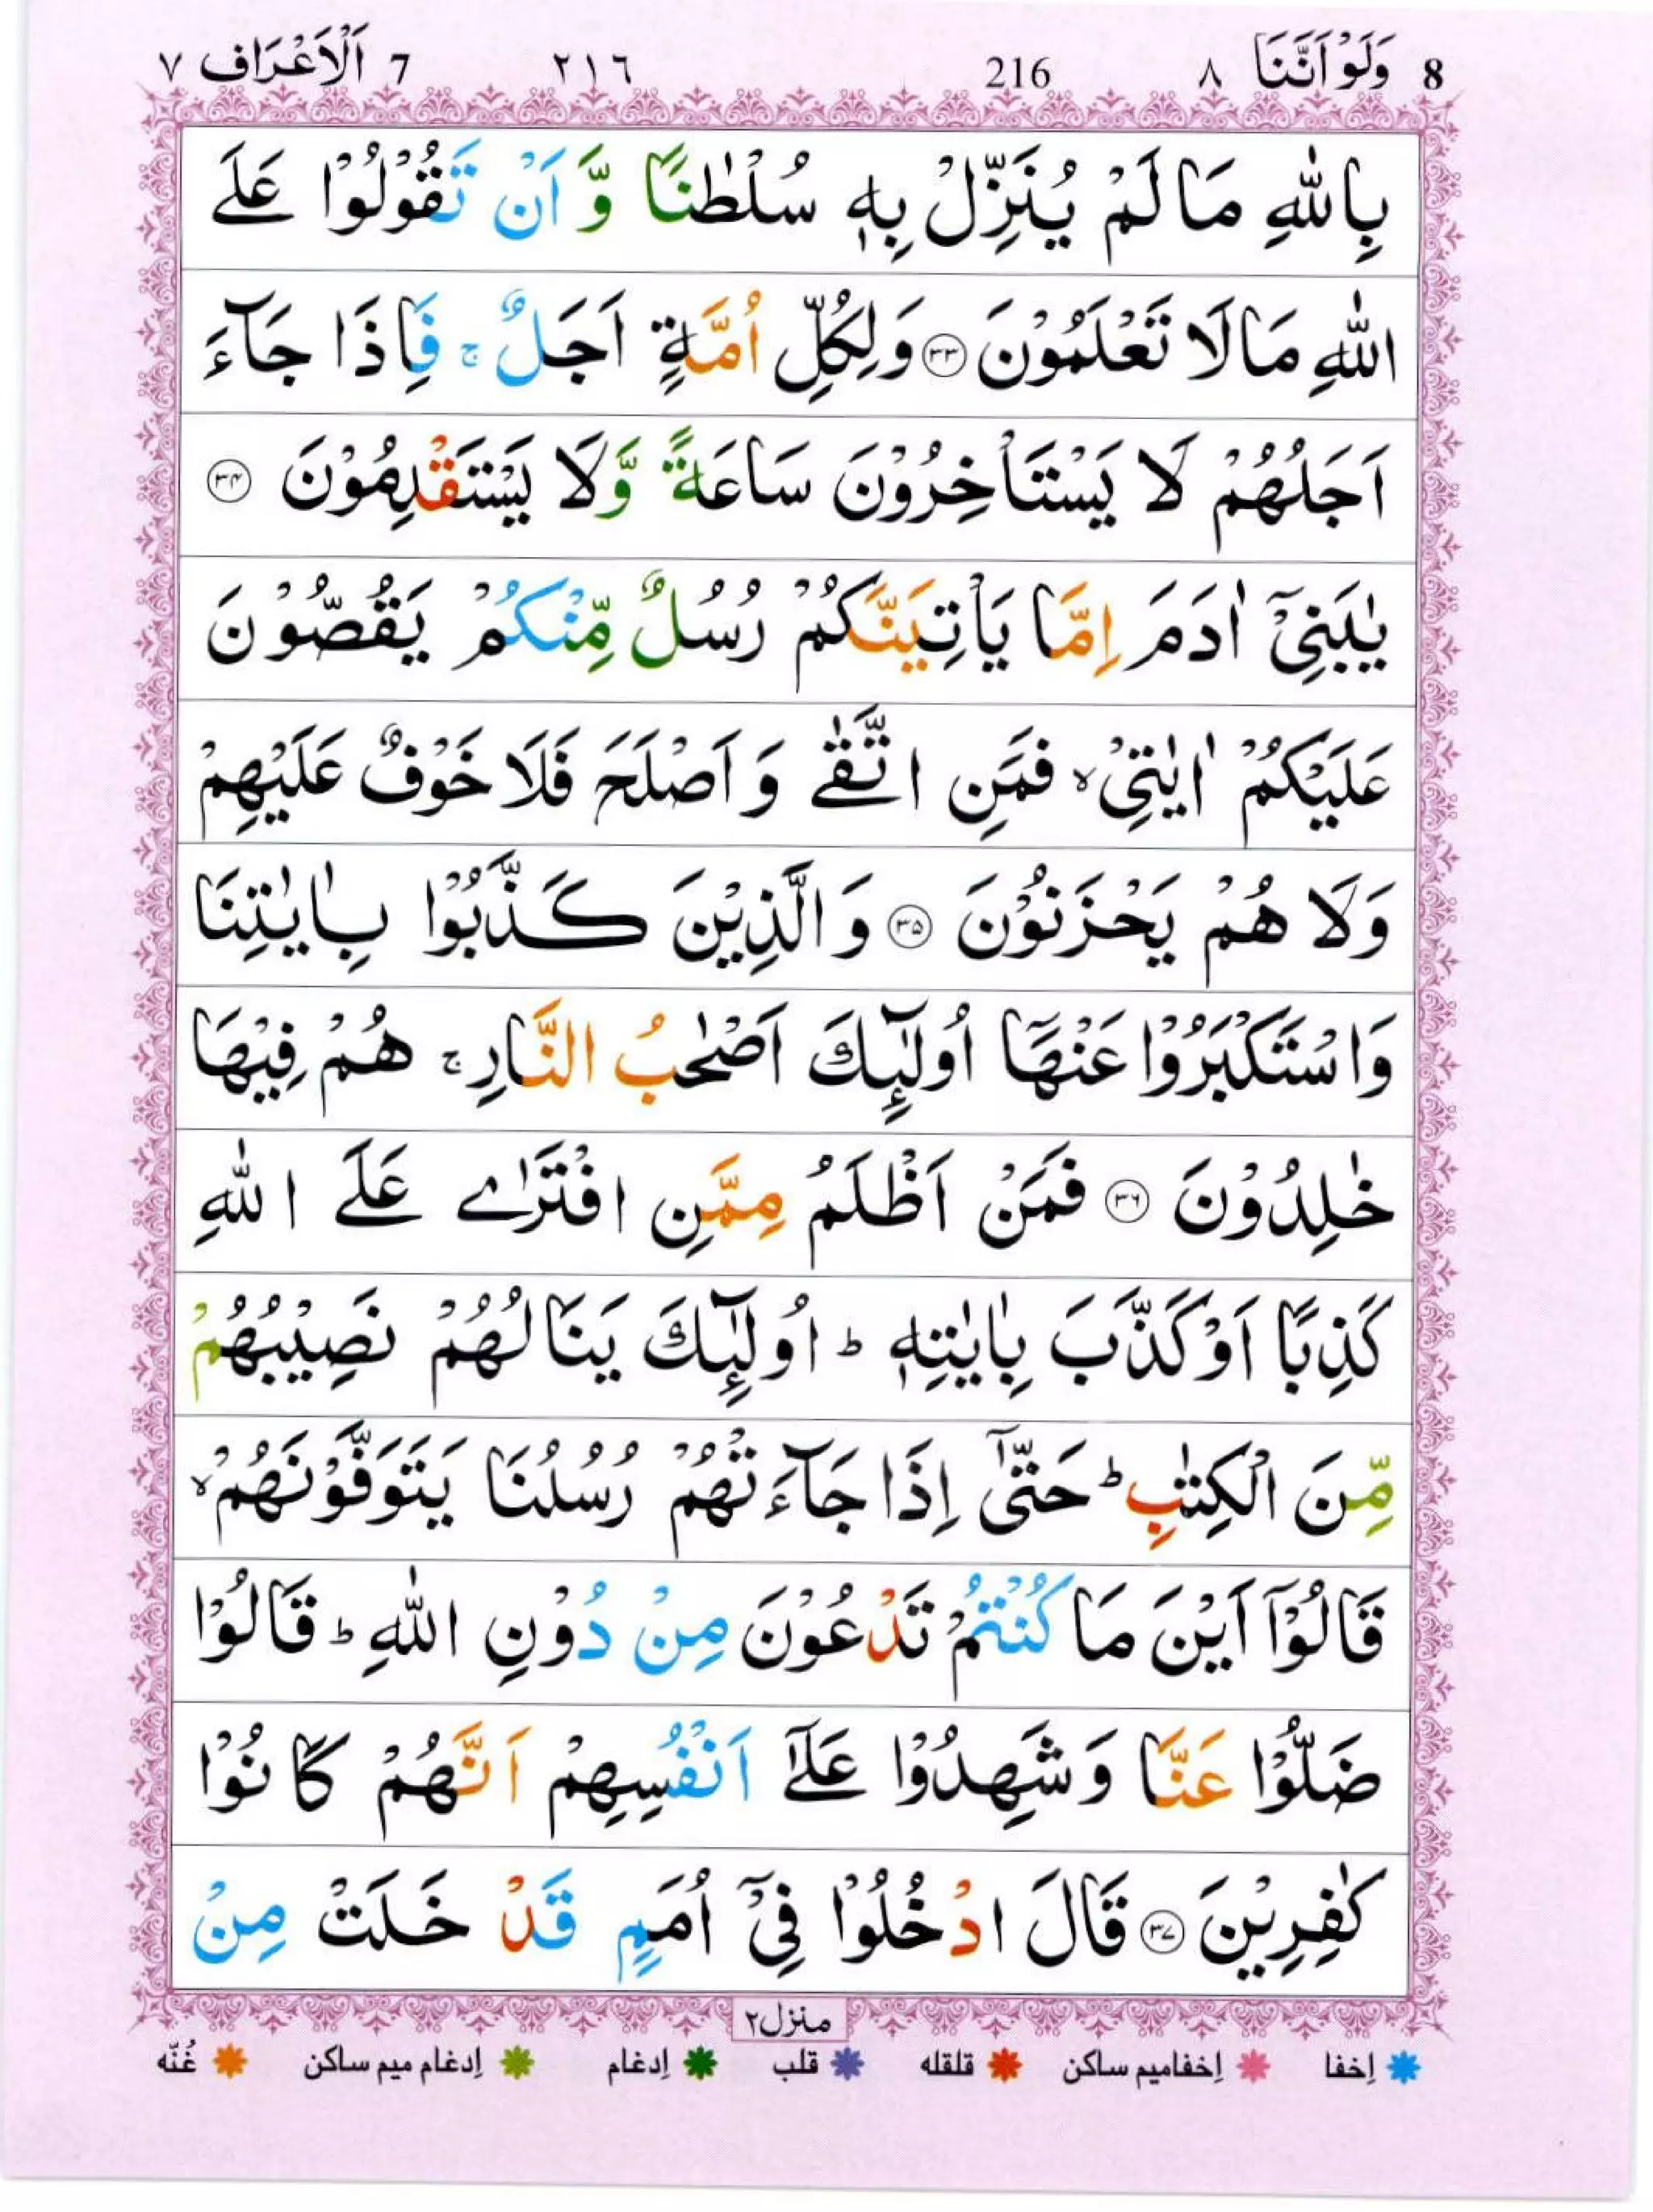 8 وَلَوْ اَنَّنَا ٨ 216 ٢١٦ 7 اَلْاَعْرَاف ٧
بِاللّٰهِ مَا لَمْ يُنَزِّلْ بِهٖ سُلْطٰنًا وَّ اَنْ تَقُوْلُوْا عَلَى
اللّٰهِ مَا لَا تَعْلَمُوْنَ ۝٣٣ وَلِكُلِّ اُمَّةٍ اَجَلٌ ۚ فَاِذَا جَآءَ
اَجَلُهُمْ لَا يَسْتَاْخِرُوْنَ سَاعَةً وَّلَا يَسْتَقْدِمُوْنَ ۝٣٤
يٰبَنِيْٓ اٰدَمَ اِمَّا يَاْتِيَنَّكُمْ رُسُلٌ مِّنْكُمْ يَقُصُّوْنَ
عَلَيْكُمْ اٰيٰتِيْ ۙ فَمَنِ اتَّقٰى وَ اَصْلَحَ فَلَا خَوْفٌ عَلَيْهِمْ
وَلَا هُمْ يَحْزَنُوْنَ ۝٣٥ وَ الَّذِيْنَ كَذَّبُوْا بِاٰيٰتِنَا
وَاسْتَكْبَرُوْا عَنْهَآ اُولٰٓئِكَ اَصْحٰبُ النَّارِ ۚ هُمْ فِيْهَا
خٰلِدُوْنَ ۝٣٦ فَمَنْ اَظْلَمُ مِمَّنِ افْتَرٰى عَلَى اللّٰهِ
كَذِبًا اَوْ كَذَّبَ بِاٰيٰتِهٖ ؕ اُولٰٓئِكَ يَنَالُهُمْ نَصِيْبُهُمْ
مِّنَ الْكِتٰبِ ؕ حَتّٰىٓ اِذَا جَآءَتْهُمْ رُسُلُنَا يَتَوَفَّوْنَهُمْ ۙ
قَالُوْٓا اَيْنَ مَا كُنْتُمْ تَدْعُوْنَ مِنْ دُوْنِ اللّٰهِ ؕ قَالُوْا
ضَلُّوْا عَنَّا وَ شَهِدُوْا عَلٰٓى اَنْفُسِهِمْ اَنَّهُمْ كَانُوْا
كٰفِرِيْنَ ۝٣٧ قَالَ ادْخُلُوْا فِيْٓ اُمَمٍ قَدْ خَلَتْ مِنْ
منزل ٢
اِخفا اِخفامیم ساکن قلقله قلب اِدغام اِدغام میم ساکن غُنّه